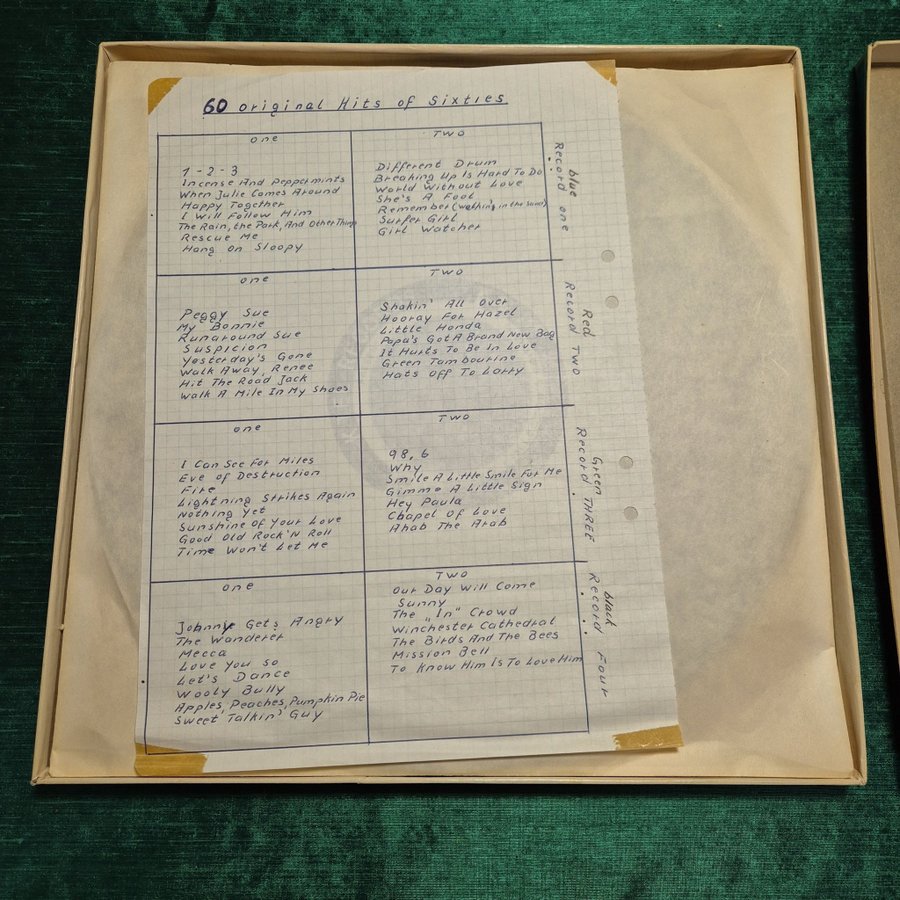 60 original Hits of Sixties
one
1-2-3
Incense And Peppermints
When Julie Comes Around
Happy Together
I Will Follow Him
The Rain, the Park, And Other Things
Rescue Me
Hang On Sloopy
TWO
Different Drum
Breaking Up Is Hard To Do
World Without Love
She's A Fool
Remember (walking in the sand)
Surfer Girl
Girl Watcher
blue
Record one
one
Peggy Sue
My Bonnie
Runaround Sue
Suspicion
Yesterday's Gone
Walk Away, Renee
Hit The Road Jack
Walk A Mile In My Shoes
TWO
Shakin' All Over
Hooray For Hazel
Little Honda
Papa's Got A Brand New Bag
It Hurts To Be In Love
Green Tambourine
Hats Off To Larry
Red
Record TWO
one
I Can See For Miles
Eve of Destruction
Fire
Lightning Strikes Again
Nothing Yet
Sunshine Of Your Love
Good Old Rock'N Roll
Time Won't Let Me
TWO
98,6
Why
Smile A Little Smile For Me
Gimme A Little Sign
Hey Paula
Chapel Of Love
Ahab The Arab
Green
Record THREE
one
Johnny Gets Angry
The Wanderer
Mecca
Love You So
Let's Dance
Wooly Bully
Apples, Peaches, Pumpkin Pie
Sweet Talkin' Guy
TWO
Our Day Will Come
Sunny
The „In" Crowd
Winchester Cathedral
The Birds And The Bees
Mission Bell
To Know Him Is To Love Him
black
Record Four